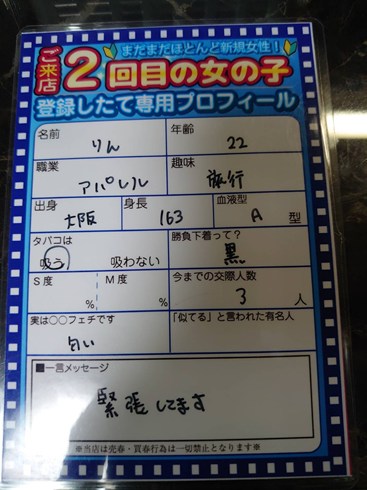 まだまだほとんど新規女性!
ご来店2回目の女の子
登録したて専用プロフィール
名前 りん 年齢 22
職業 アパレル 趣味 旅行
出身 大阪 身長 163 血液型 A 型
タバコは 吸う 吸わない 勝負下着って? 黒
S度 % M度 % 今までの交際人数 3 人
実は○○フェチです 匂い 「似てる」と言われた有名人
■一言メッセージ
緊張してます
※当店は売春・買春行為は一切禁止となります※